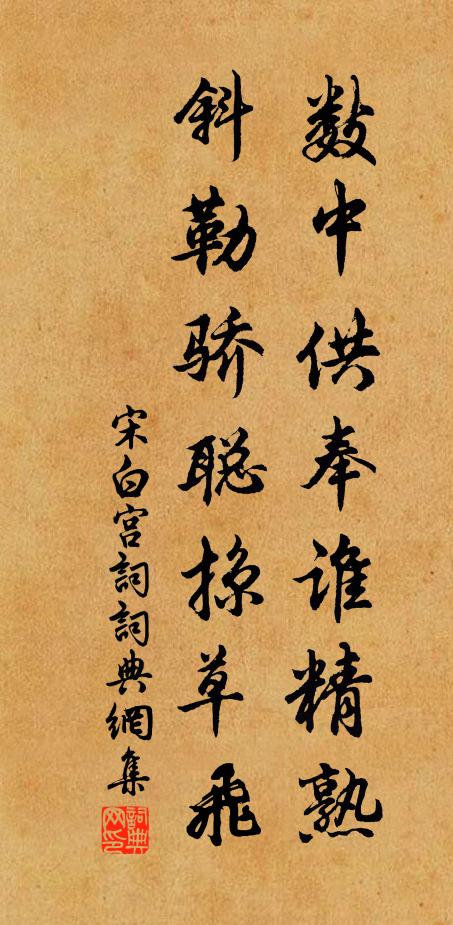 数中供奉谁精熟
斜勒骄聪掠草飞
宋白宫詞詞典網集
詞典網印